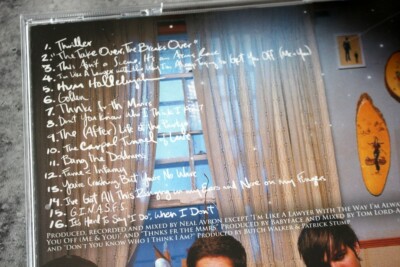 1. Thriller
2. "The Take Over, The Breaks Over"
3. This Ain't a Scene, It's an Arms Race
4. I'm Like A Lawyer with the Way I'm Always Trying to Get You Off (Me + You)
5. Hum Hallelujah
6. Golden
7. Thnks fr th Mmrs
8. Don't You Know Who I Think I Am?
9. The (After) Life of the Party
10. The Carpal Tunnel of Love
11. Bang the Doldrums
12. Fame < Infamy
13. You're Crashing, But You're No Wave
14. I've Got All This Ringing in my Ears and None on my Fingers
15. G.I.N.A.S.F.S.
16. It's Hard to Say "I Do", When I Don't
Produced, recorded and mixed by Neal Avron except "I'm Like A Lawyer With The Way I'm Alwa
You Off (Me & You)" and "Thnks fr th Mmrs" Produced by Babyface and Mixed by Tom Lord-A
and "Don't You Know Who I Think I Am?" Produced by Butch Walker & Patrick Stump